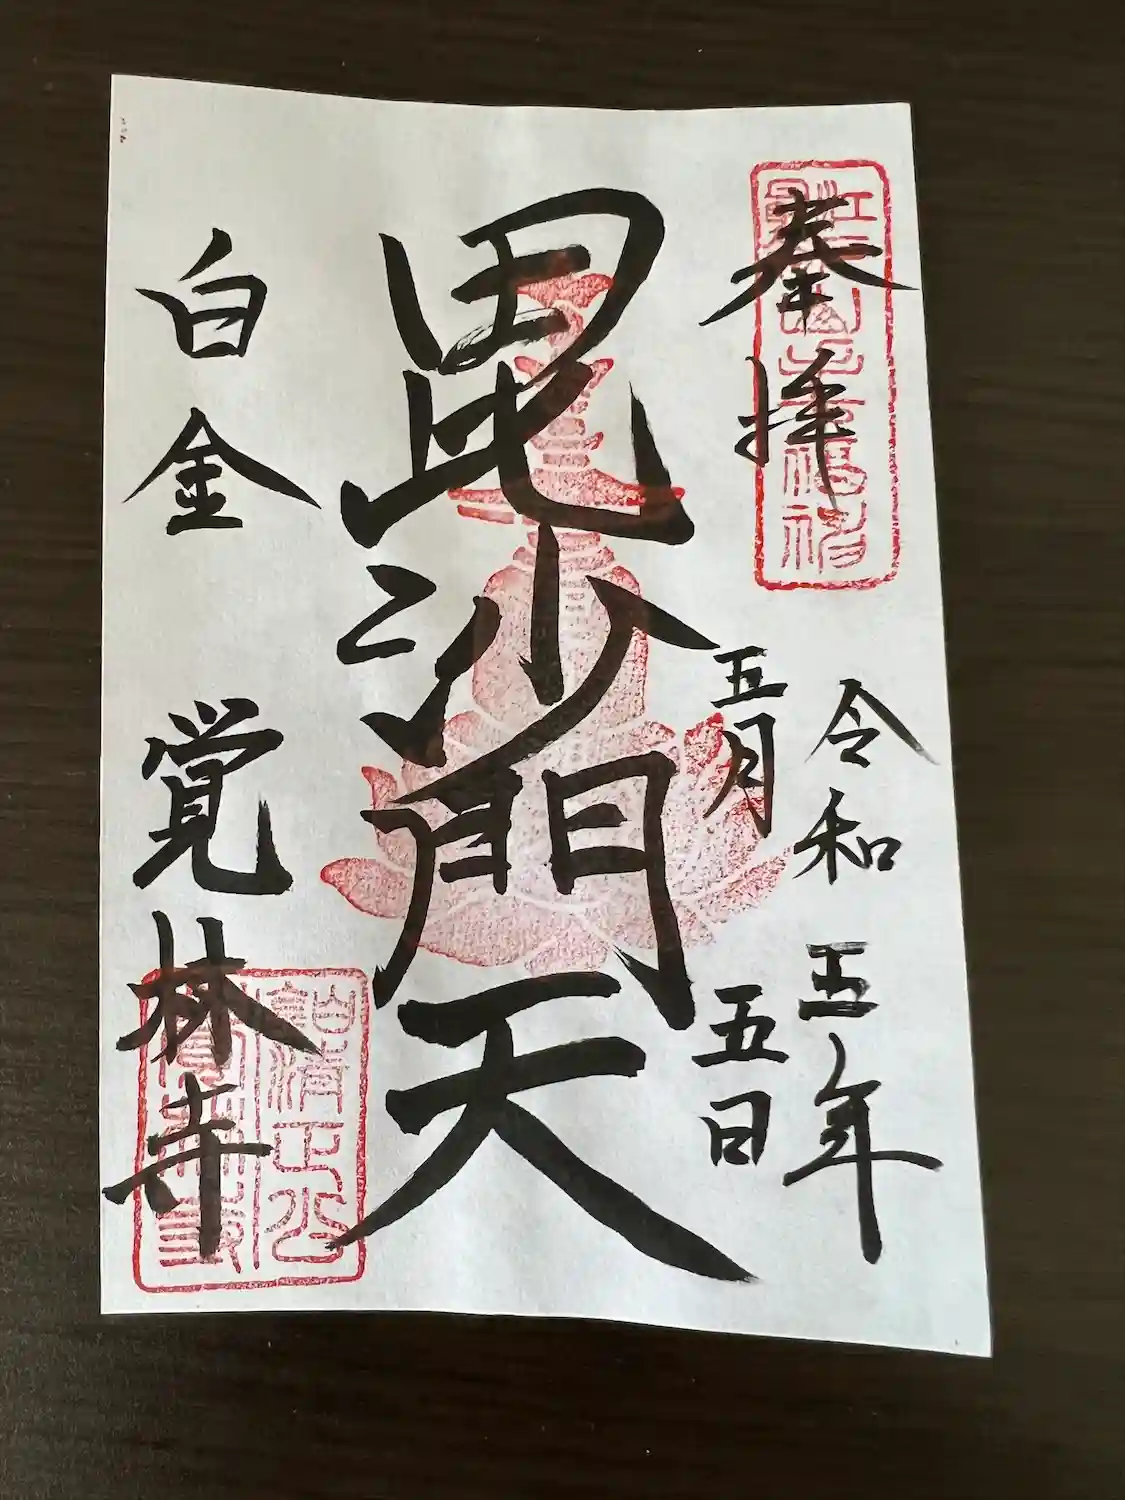 奉拝
令和五年
五月五日
毘沙門天
白金 覚林寺
清正公